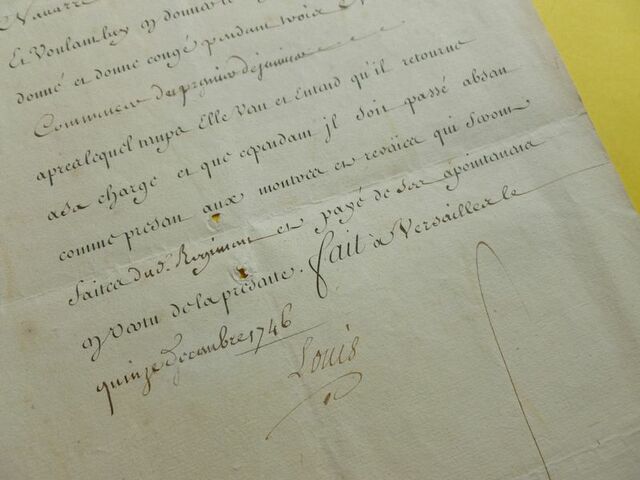 Navarre
Et Voulant luy y donner le
donné et donne congé pendant trois
Commencer du premier de janvier
apres lequel temps Elle Veut et Entend qu'il retourne
a sa charge et que cependant jl soit passé absan
comme presan aux montres et reveües qui seront
faites dud. Regiment et payé de ses apointemens
y Vertu de la presante. fait a Versailles le
quinze Decembre 1746
Louis